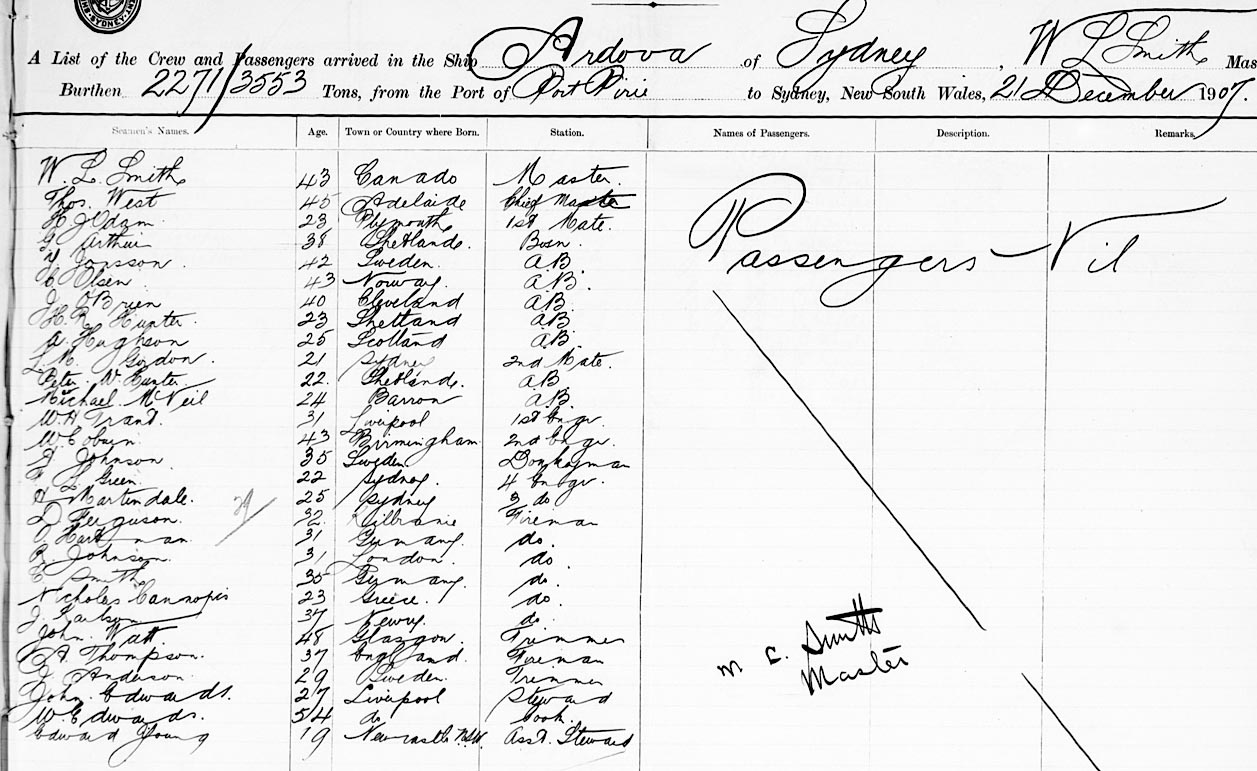 SYDNEY
A List of the Crew and Passengers arrived in the Ship Ardova of Sydney, W L Smith Mas
Burthen 2271/3553 Tons, from the Port of Port Pirie to Sydney, New South Wales, 21 December 1907.
Seamen's Names. Age. Town or Country where Born. Station. Names of Passengers. Description. Remarks,
W. L. Smith 43 Canado Master.
Thos. West 45 Adelaide Chief Master
H J Odam 23 Plymouth 1st Mate.
G. Arthur 38 Shetlands. Bosn.
Jonsson. 42 Sweden. A.B.
C. Olsen 43 Norway. A.B.
J. O'Brien 40 Cleveland A.B.
H. R. Hunter. 23 Shetland A.B.
A. Hughson 25 Scotland A.B.
L. M. Gordon. 21 Sydney 2nd Mate.
Peter W. Hunter. 22. Shetlands. A.B.
Michael McNeil 24 Barron A.B.
W. H. Grant. 31 Liverpool 1st Engr.
W. Coburn 43 Birmingham 2nd Engr.
J. Johnson 35 Sweden Donkeyman
F. L. Green. 22 Sydney. 4 Engr.
H Martindale. 25 Sydney 3 do
D Ferguson. 32. Fireman
O. Hartman 31 Germany. do.
R. Johnson. 31 London. do.
C Smith 35 Germany. do.
Nicholas Cannopis 23 Greece. do.
J. Karlson 37 Newry. do.
John. Watt 48 Glasgow. Trimmer
A. Thompson. 37 England. Fireman
J. Anderson. 29 Sweden. Trimmer
John. Edwards. 27 Liverpool Steward
W. Edwards. 54 do Cook.
Edward Young 19 Newcastle N.S.W. Asst. Steward
Passengers - Nil
29/
M C. Smith
Master